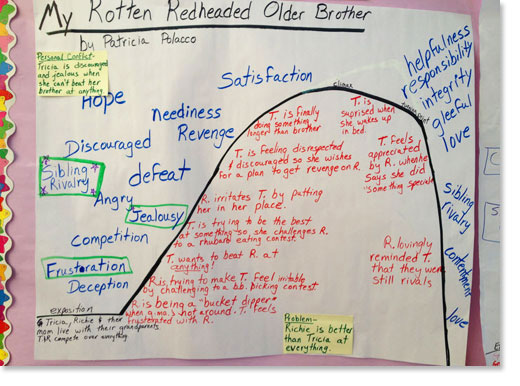 My Rotten Redheaded Older Brother
by Patricia Polacco
Personal Conflict-
Tricia is discouraged
and jealous when
she can't beat her
brother at anything.
Hope
Discouraged
Sibling
Rivalry
Angry
Jealousy
Competition
Frustoration
Deception
Satisfaction
Neediness
Revenge
defeat
climax
T. is finally
doing something
longer than brother
T. is
suprised when
she wakes up
in bed.
T. is feeling disrespected
& discouraged so she wishes
for a plan to get revenge on R.
R. irritates T. by putting
her in her place.
T. is trying to be the best
at something so she challenges R.
to a rhubarb eating contest.
T. wants to beat R. at
anything!
R is trying to make T. feel irritable
by challenging to a b.b. picking contest
R is being a "bucket dipper"
when g.ma.'s not around. T. feels
frusterated with R.
exposition
Tricia, Richie & their
mom live with their grandparents.
T&R compete over everything
T. feels
appreciated
by R. when he
says she did
"something special"
R. lovingly
reminded T.
that they were
still rivals
Problem-
Richie is better
than Tricia at
everything.
helpfulness
responsibility
integrity
gleeful
love
Sibling
rivalry
contentment
love